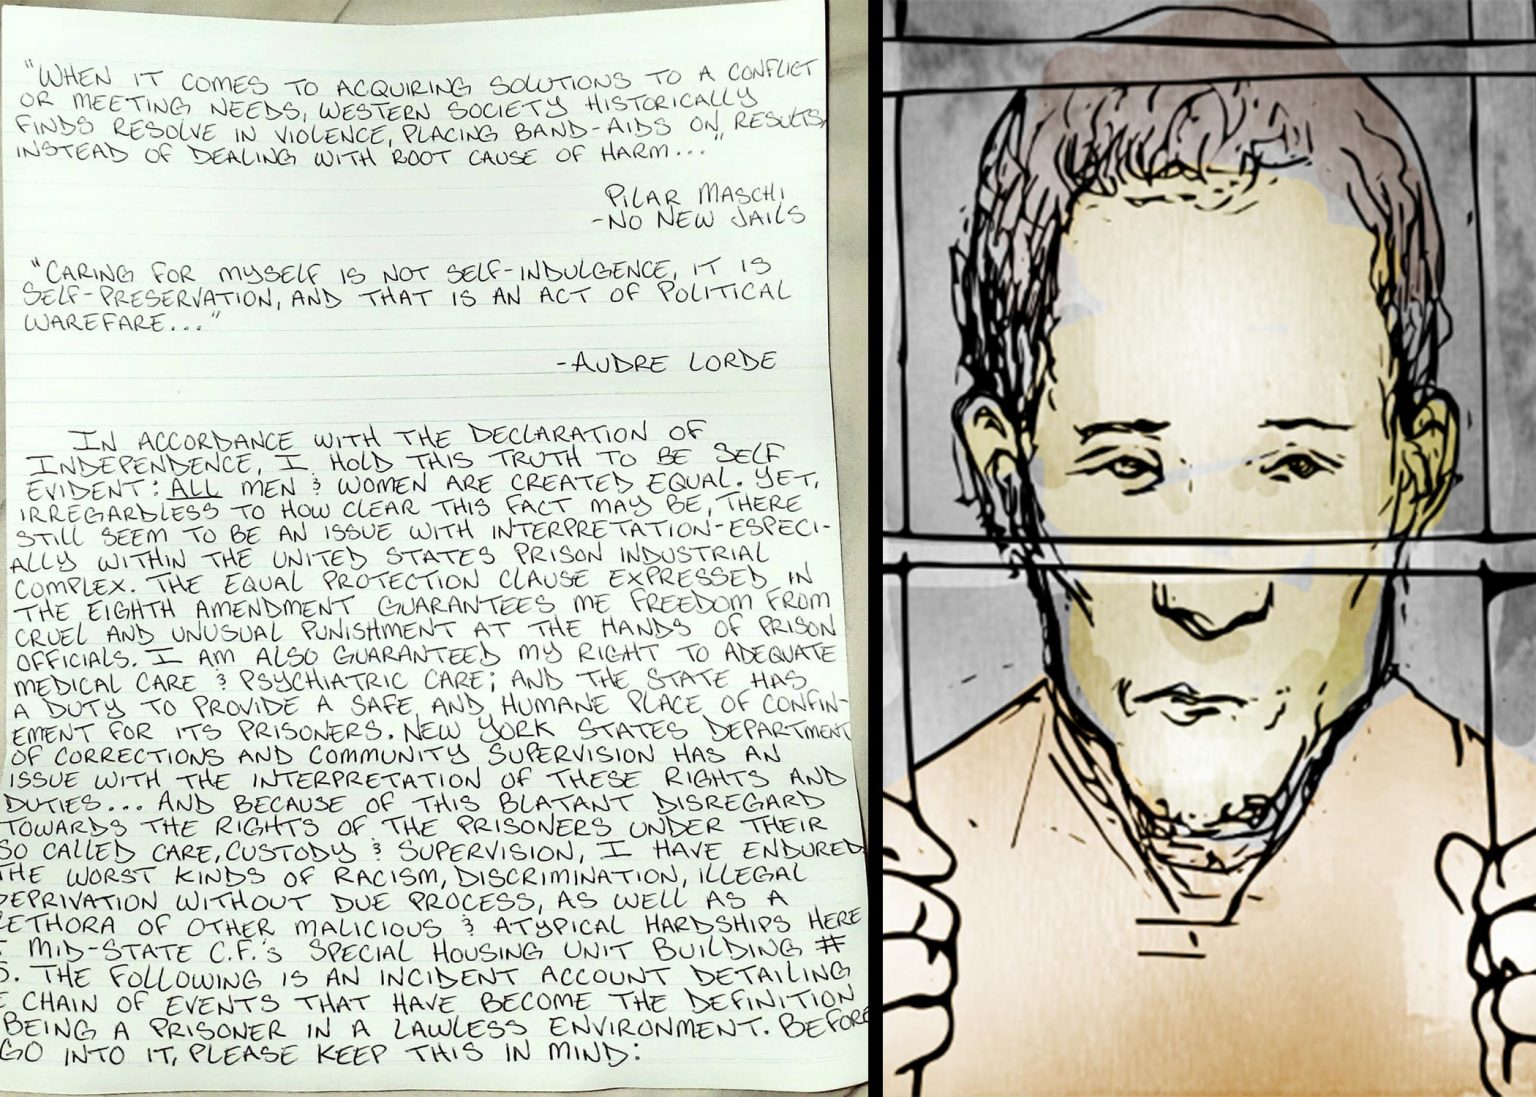 "WHEN IT COMES TO ACQUIRING SOLUTIONS TO A CONFLICT
OR MEETING NEEDS, WESTERN SOCIETY HISTORICALLY
FINDS RESOLVE IN VIOLENCE, PLACING BAND-AIDS ON RESULTS,
INSTEAD OF DEALING WITH ROOT CAUSE OF HARM..."
PILAR MASCHI
-NO NEW JAILS
"CARING FOR MYSELF IS NOT SELF-INDULGENCE, IT IS
SELF-PRESERVATION, AND THAT IS AN ACT OF POLITICAL
WAREFARE..."
-AUDRE LORDE
IN ACCORDANCE WITH THE DECLARATION OF
INDEPENDENCE, I HOLD THIS TRUTH TO BE SELF
EVIDENT: ALL MEN & WOMEN ARE CREATED EQUAL. YET,
IRREGARDLESS TO HOW CLEAR THIS FACT MAY BE, THERE
STILL SEEM TO BE AN ISSUE WITH INTERPRETATION-ESPECI-
ALLY WITHIN THE UNITED STATES PRISON INDUSTRIAL
COMPLEX. THE EQUAL PROTECTION CLAUSE EXPRESSED IN
THE EIGHTH AMENDMENT GUARANTEES ME FREEDOM FROM
CRUEL AND UNUSUAL PUNISHMENT AT THE HANDS OF PRISON
OFFICIALS. I AM ALSO GUARANTEED MY RIGHT TO ADEQUATE
MEDICAL CARE & PSYCHIATRIC CARE; AND THE STATE HAS
A DUTY TO PROVIDE A SAFE AND HUMANE PLACE OF CONFIN-
EMENT FOR ITS PRISONERS. NEW YORK STATES DEPARTMENT
OF CORRECTIONS AND COMMUNITY SUPERVISION HAS AN
ISSUE WITH THE INTERPRETATION OF THESE RIGHTS AND
DUTIES... AND BECAUSE OF THIS BLATANT DISREGARD
TOWARDS THE RIGHTS OF THE PRISONERS UNDER THEIR
SO CALLED CARE, CUSTODY & SUPERVISION, I HAVE ENDURED
THE WORST KINDS OF RACISM, DISCRIMINATION, ILLEGAL
DEPRIVATION WITHOUT DUE PROCESS, AS WELL AS A
LETHORA OF OTHER MALICIOUS & ATYPICAL HARDSHIPS HERE
T MID-STATE C.F.'S SPECIAL HOUSING UNIT BUILDING #
. THE FOLLOWING IS AN INCIDENT ACCOUNT DETAILING
E CHAIN OF EVENTS THAT HAVE BECOME THE DEFINITION
BEING A PRISONER IN A LAWLESS ENVIRONMENT. BEFORE
GO INTO IT, PLEASE KEEP THIS IN MIND: